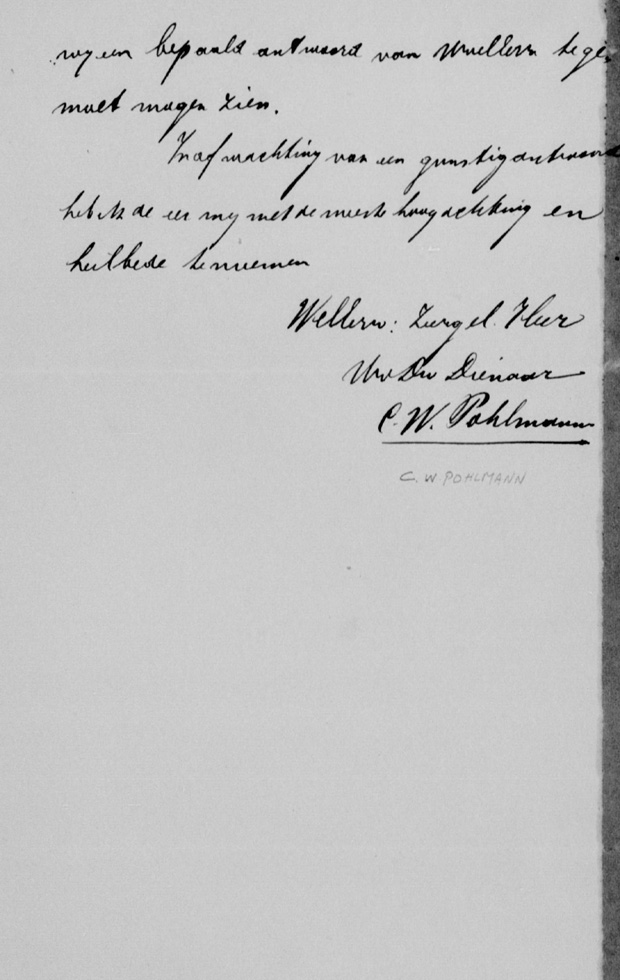 wy een bepaald antwoord van UwelEerw tege
moet mogen zien.
In afwachting van een gunstig antwoord
heb ik de eer my met de meeste hoogachting en
heilbede te noemen
WelEerw: Zeergel. Heer
Uw Dw Dienaar
C. W. Pohlmann
C. W POHLMANN